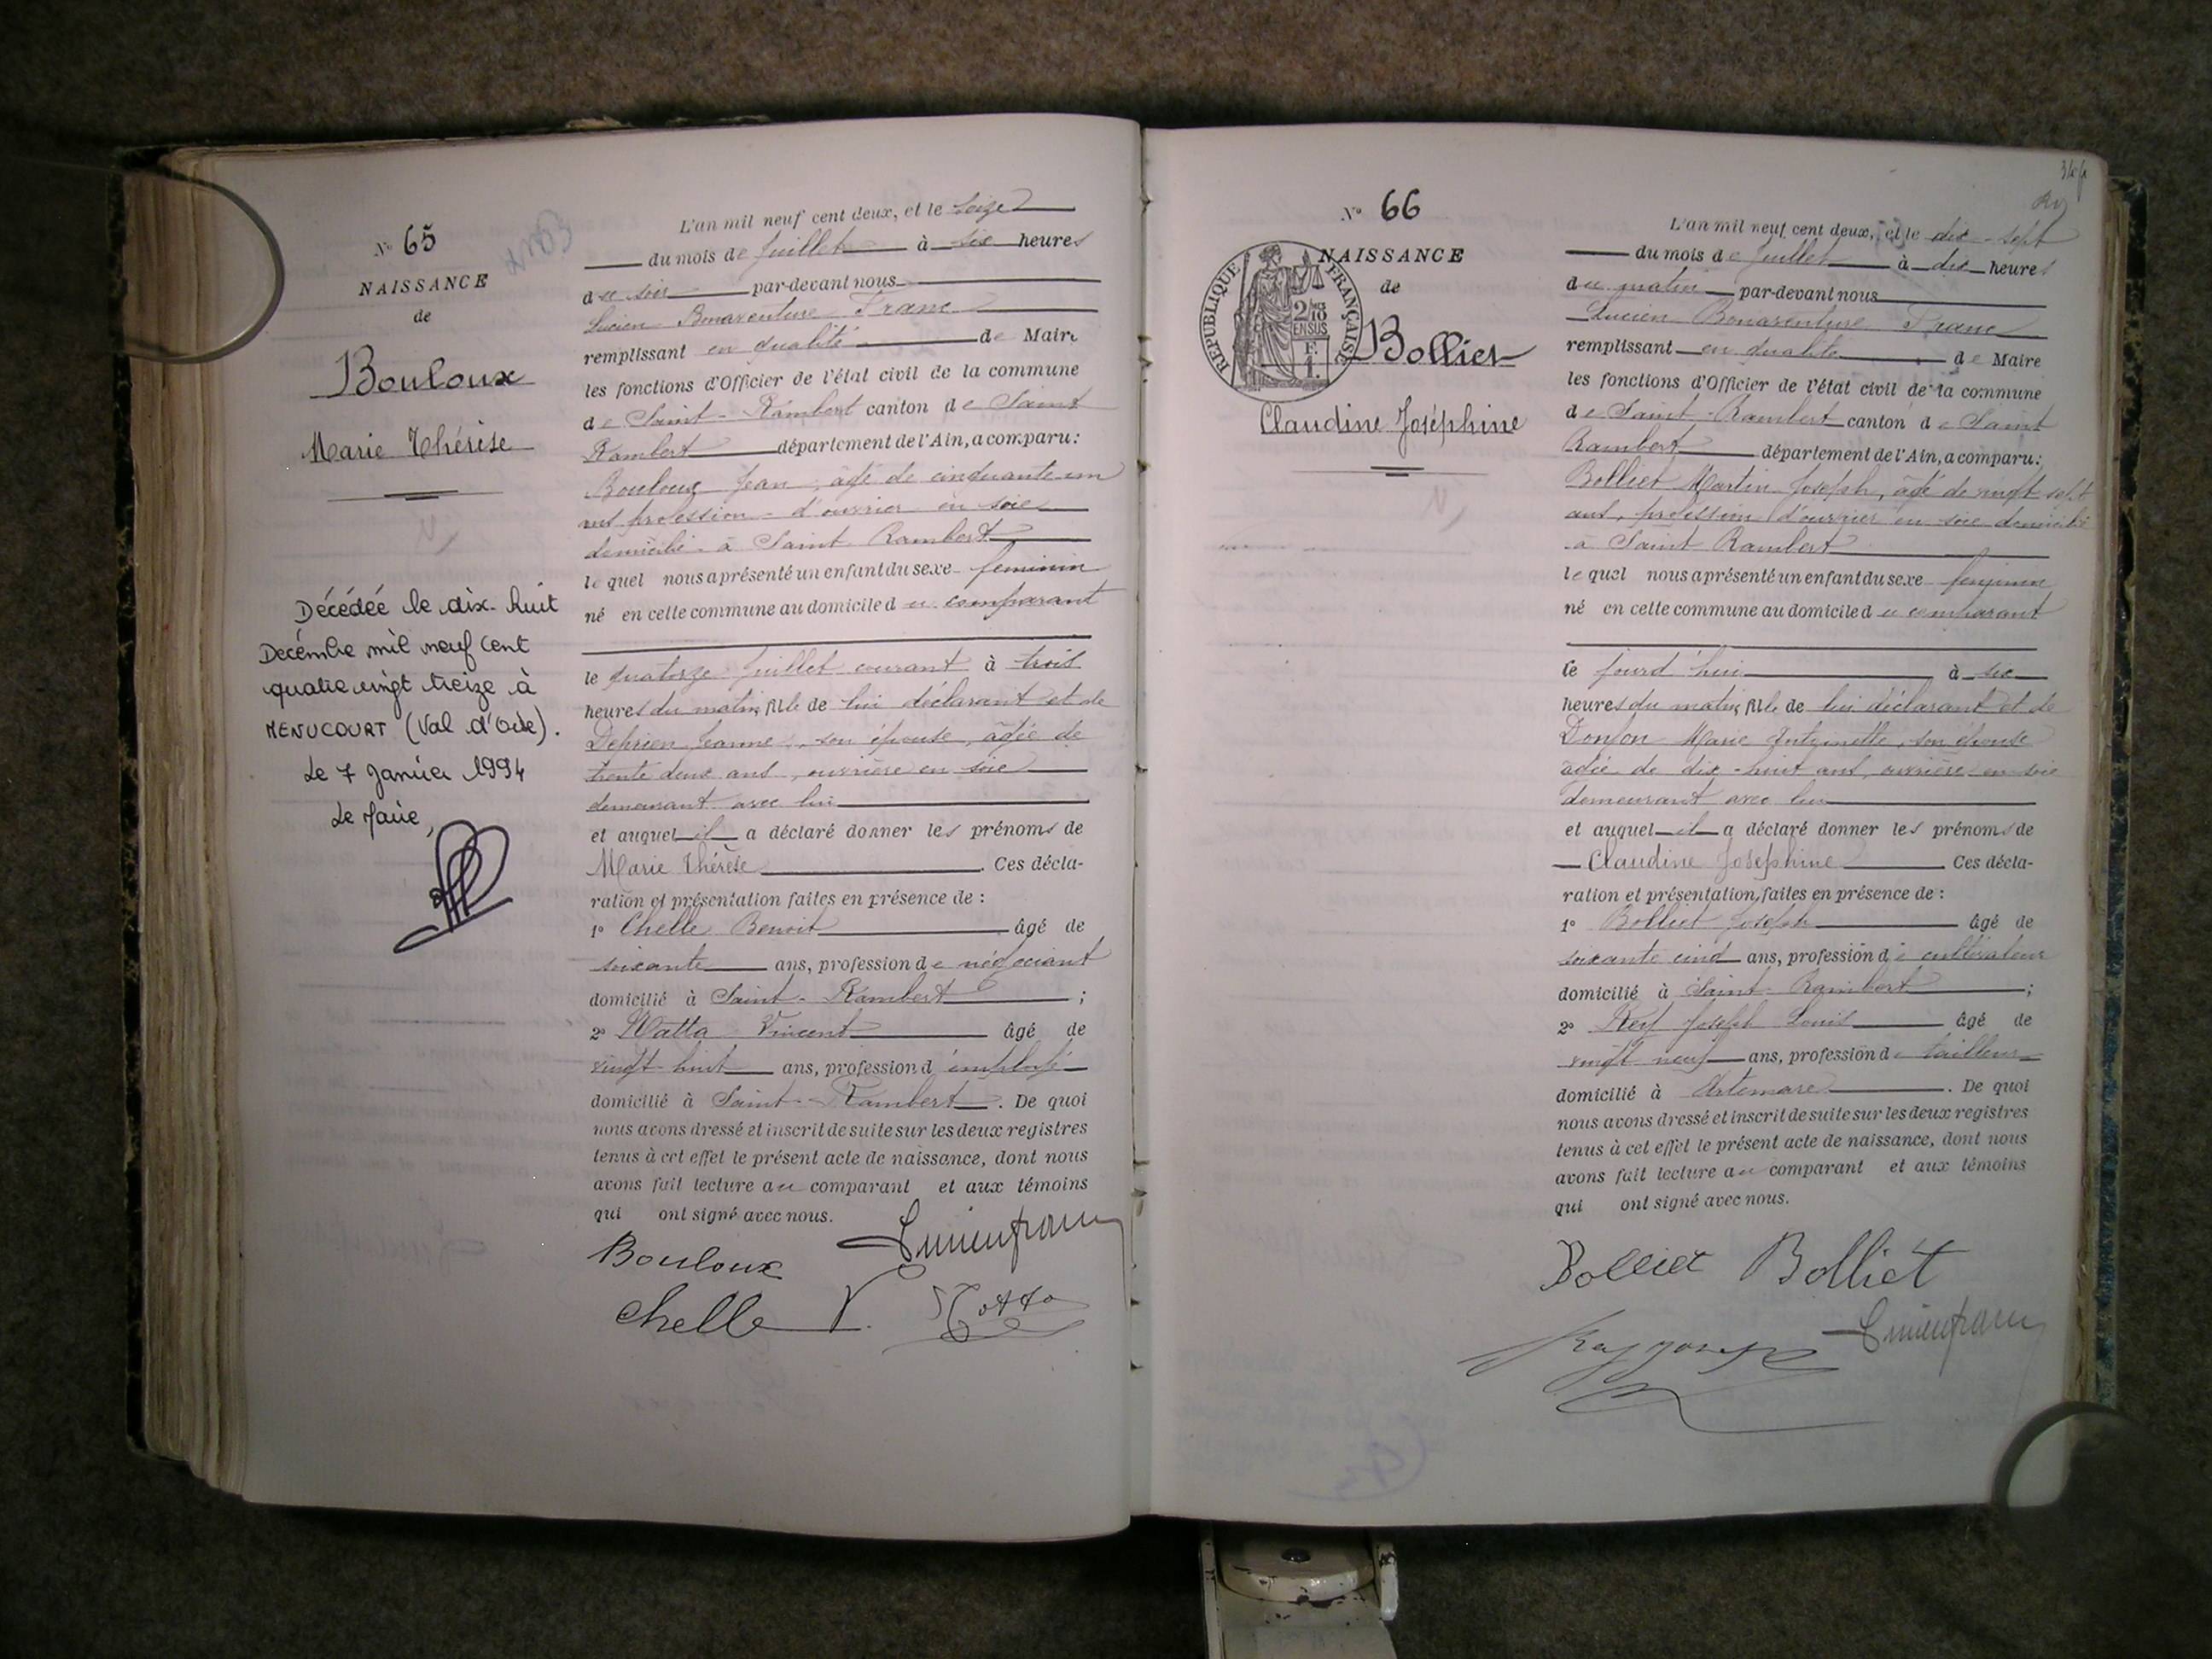 N° 65
NAISSANCE
de
Bouloux
Marie Thérèse
Décédée le dix-huit
Décembre mil neuf cent
quatre vingt treize à
MENUCOURT (Val d'Oise).
Le 7 Janvier 1994
Le Maire,
L'an mil neuf cent deux, et le seize
du mois de Juillet à six heures
du soir par-devant nous
Lucien Bonaventure Franc
remplissant en qualité de Maire
les fonctions d'Officier de l'état civil de la commune
de Saint-Rambert canton de Saint
Rambert département de l'Ain, a comparu:
Bouloux Jean, âgé de cinquante-un
ans profession d'ouvrier en soie
domicilié à Saint Rambert
lequel nous a présenté un enfant du sexe féminin
né en cette commune au domicile du comparant
le quatorze Juillet courant à trois
heures du matin, fille de lui déclarant et de
Jeanne, son épouse, âgée de
trente deux ans, ouvrière en soie
demeurant avec lui
et auquel il a déclaré donner les prénoms de
Marie Thérèse. Ces décla-
ration et présentation faites en présence de :
1° Chelle Benoit âgé de
soixante ans, profession de négociant
domicilié à Saint-Rambert ;
2° Vincent âgé de
vingt huit ans, profession d'employé
domicilié à Saint-Rambert. De quoi
nous avons dressé et inscrit de suite sur les deux registres
tenus à cet effet le présent acte de naissance, dont nous
avons fait lecture au comparant et aux témoins
qui ont signé avec nous.
Bouloux
Chelle V.
N° 66
NAISSANCE
de
RÉPUBLIQUE FRANÇAISE
2/10 EN SUS
Bolliet
Claudine Joséphine
L'an mil neuf cent deux, et le dix-sept
du mois de Juillet à dix heures
du matin par-devant nous
Lucien Bonaventure Franc
remplissant en qualité de Maire
les fonctions d'Officier de l'état civil de la commune
de Saint-Rambert canton de Saint
Rambert département de l'Ain, a comparu:
Bolliet Martin Joseph, âgé de vingt sept
ans, profession d'ouvrier en soie domicilié
à Saint Rambert
lequel nous a présenté un enfant du sexe féminin
né en cette commune au domicile du comparant
ce jourd'hui à six
heures du matin, fille de lui déclarant et de
Marie Antoinette, son épouse
âgée de dix-huit ans, ouvrière en soie
demeurant avec lui
et auquel il a déclaré donner les prénoms de
Claudine Joséphine Ces décla-
ration et présentation, faites en présence de :
1° Bolliet Joseph âgé de
soixante cinq ans, profession de cultivateur
domicilié à Saint-Rambert ;
2° Joseph Louis âgé de
vingt neuf ans, profession de tailleur
domicilié à Artemare. De quoi
nous avons dressé et inscrit de suite sur les deux registres
tenus à cet effet le présent acte de naissance, dont nous
avons fait lecture au comparant et aux témoins
qui ont signé avec nous.
Bolliet Bolliet